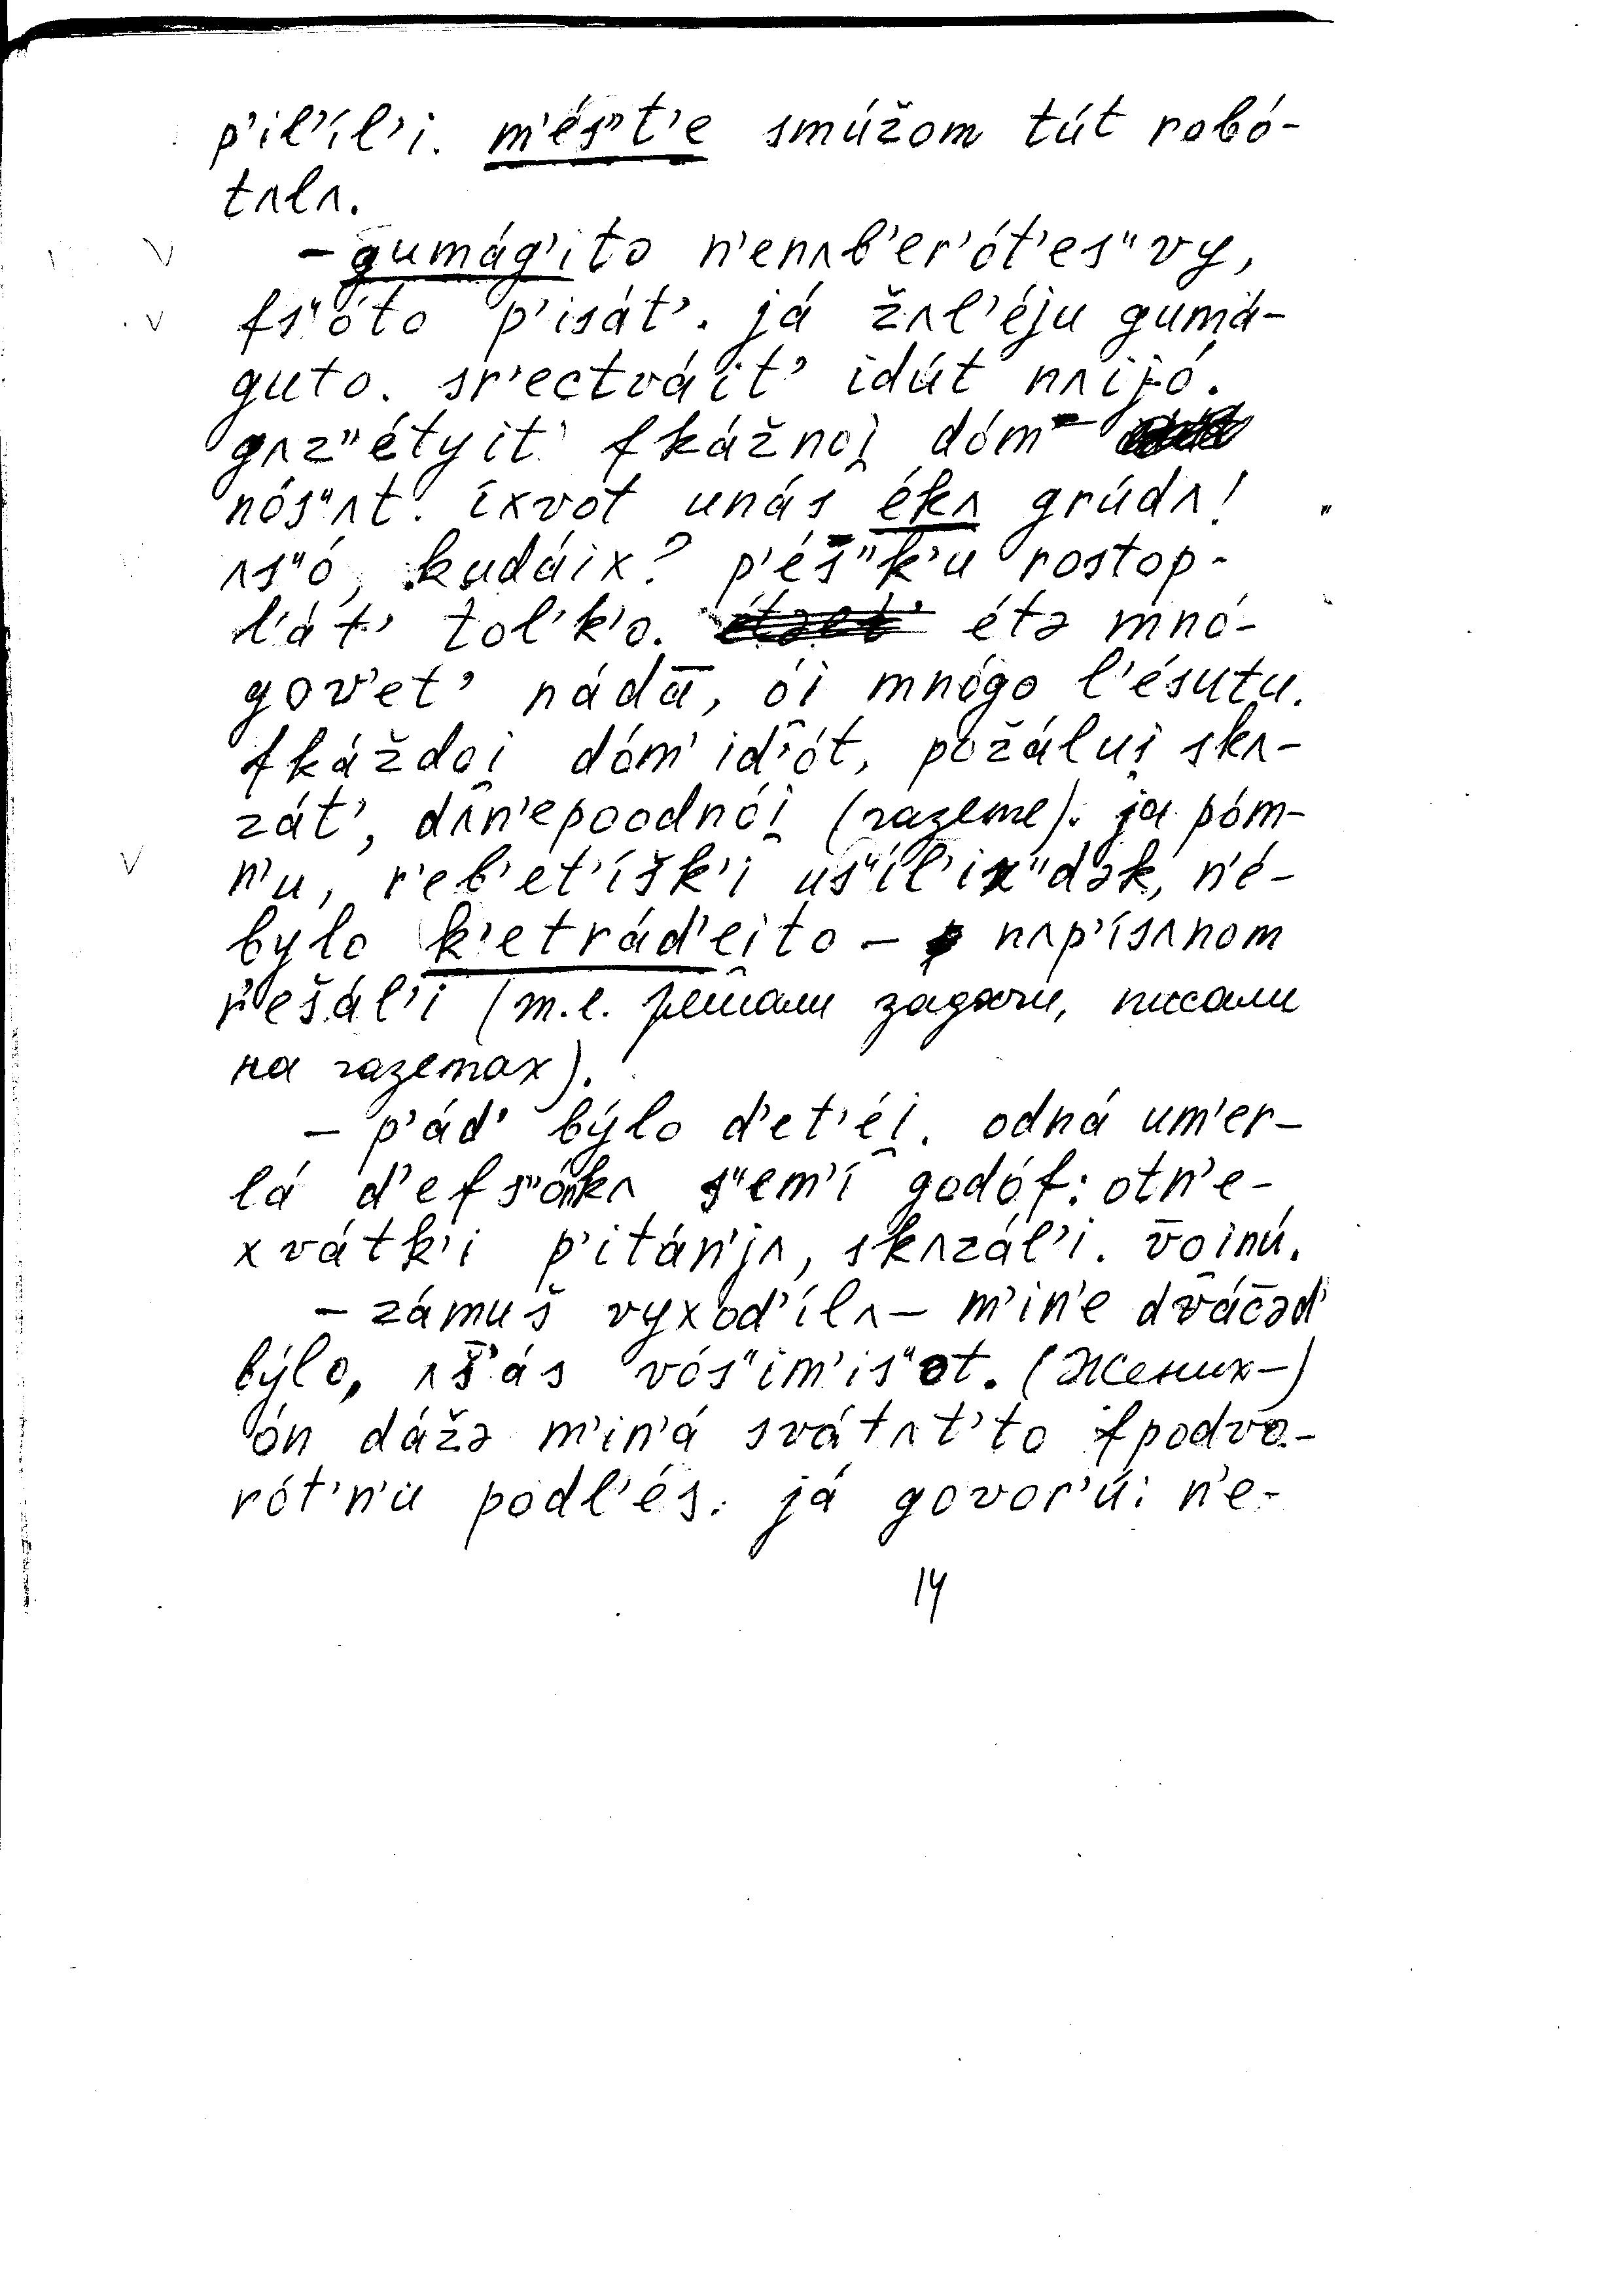 p'il'íl'i. m'és"t'e smúžom tút robó-
tʌlʌ.
– gumág'itə n'enʌb'er'ót'es"vy,
fs"óto p'isát'. já žʌl'éju gumá-
guto. sr'ectváit' idút nʌi̯jó.
gʌz"étyit' fkážnoi̯ dóm
nós"ʌt. íxvot unás ékʌ grúdʌ!
ʌs"ó, kudáix? p'és"k'u rostop-
l'át' tol'k'ə. étə mnó-
gov'et' nádā, ói mnógo l'ésutu.
fkáždoi̯ dóm id'ót, požálui̯ skʌ-
zát', dʌn'epoodnói̯ (газете). ja póm-
n'u, r'eb'et'íšk'i us"íl'ix"dək, n'é-
bylo k'etrád'ei̯to – nʌp'ísʌnom
r'ešál'i (т.е. решали задачи, писали
на газетах).
– p'ád' býlo d'et'éi̯. odná um'er-
lá d'efs"ónkʌ s"em'í godóf: otn'e-
xvátk'i p'itán'jʌ, skʌzál'i. v̄oi̯nú.
– zámuš vyxod'ílʌ – m'in'e dvác̄əd'
býlo, ʌš'ás vós"im'is"ot. (Жених –)
ón dážə m'in'á svátʌt'to fpodvo-
rót'n'u podl'és. já govor'ú: n'e-
14